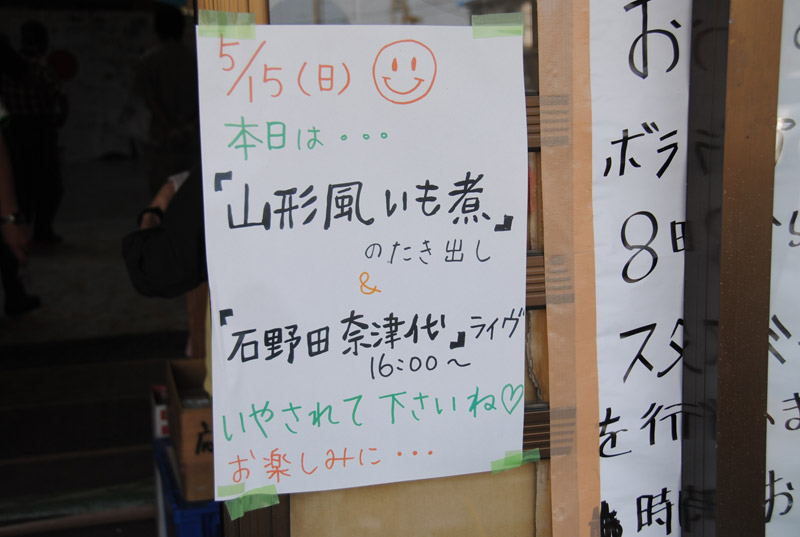 5/15(日)
本日は・・・
「山形風いも煮」
のたき出し
&
「石野田奈津代」ライヴ
16:00〜
いやされて下さいね♡
お楽しみに・・・
お
ボラ
8日
スタ
を行
時